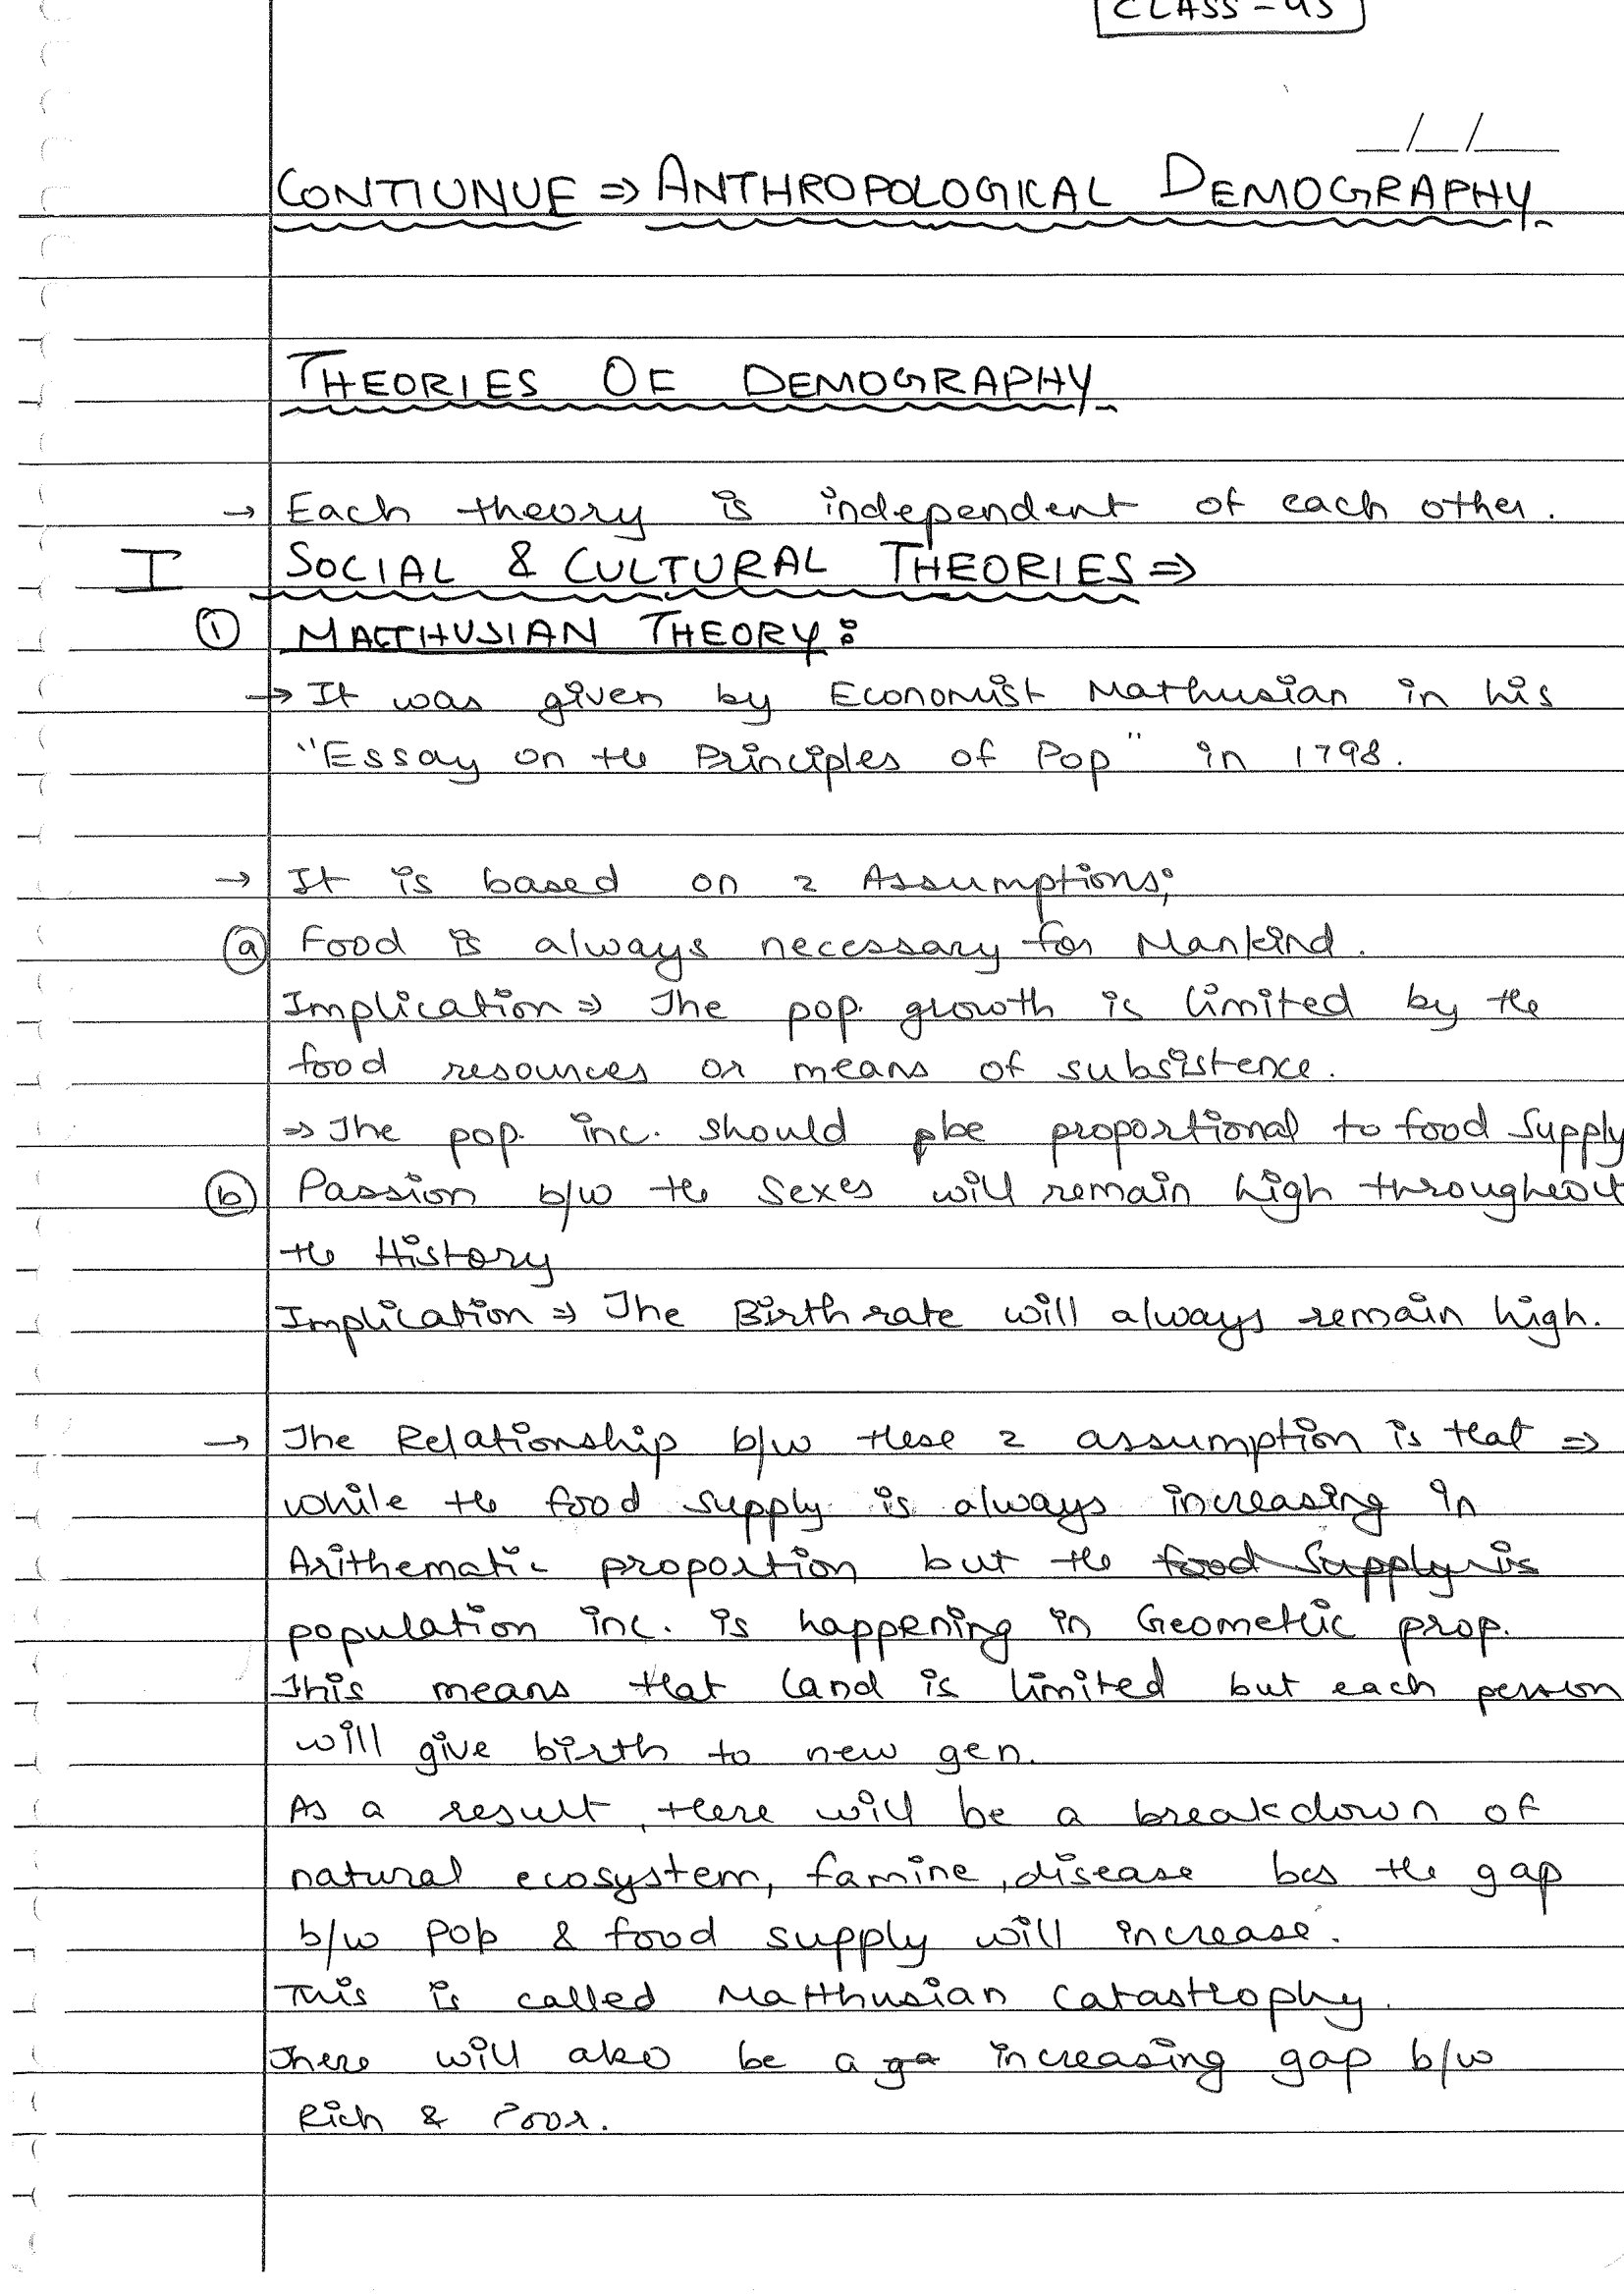 CLASS-45
_/_/_
CONTIUNUE ⇒ ANTHROPOLOGICAL DEMOGRAPHY.
THEORIES OF DEMOGRAPHY.
→ Each theory is independent of each other.
I SOCIAL & CULTURAL THEORIES ⇒
① MALTHUSIAN THEORY:
→ It was given by Economist Mathusian in his
"Essay on the Principles of Pop" in 1798.
→ It is based on 2 Assumptions;
ⓐ Food is always necessary for Mankind.
Implication ⇒ The pop. growth is limited by the
food resources or means of subsistence.
⇒ The pop. inc. should be proportional to food supply
ⓑ Passion b/w the Sexes will remain high throughout
the History
Implication ⇒ The Birth rate will always remain high.
→ The Relationship b/w these 2 assumption is that ⇒
while the food supply is always increasing in
Arithematic proportion but the food supply is
population inc. is happening in Geometric prop.
This means that land is limited but each person
will give birth to new gen.
As a result, there will be a breakdown of
natural ecosystem, famine, disease bcs the gap
b/w Pop & food supply will increase.
This is called Matthusian Catastrophy.
There will also be a ga increasing gap b/w
Rich & Poor.